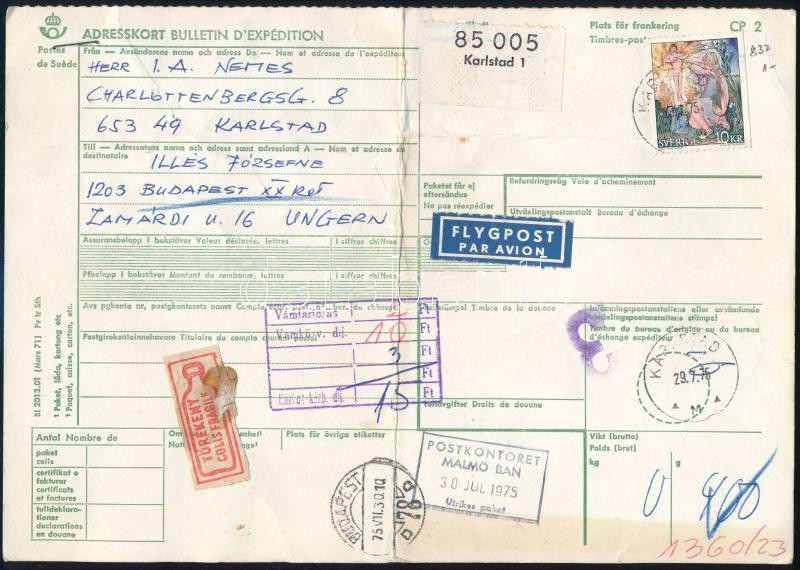 ADRESSKORT BULLETIN D'EXPÉDITION
Postes de Suède
Från – Avsändarens namn och adress De – Nom et adresse de l'expéditeur
HERR I. A. NEMES
CHARLOTTENBERGSG. 8
653 49 KARLSTAD
Till – Adressatens namn och adress samt adressland A – Nom et adresse de destinataire
ILLÉS JÓZSEFNE
1203 BUDAPEST XX KER
ZAMÁRDI U. 16 UNGERN
85 005
Karlstad 1
Plats för frankering
Timbres-poste
CP 2
SVERIGE 10KR
832
1-
Paketet får ej eftersändas
Ne pas réexpédier
Befordringsväg Voie d'acheminement
Utväxlingspostanstalt Bureau d'échange
FLYGPOST
PAR AVION
Assuransbelopp i bokstäver Valeur déclarée, lettres
I siffror chiffres
Pfbelopp i bokstäver Montant du rembours, lettres
I siffror chiffres
Avs pgkonto nr, postgkontorets namn
Postgirokontoinnehavare Titulaire du compte courant postal
Vámtarto.ás
Vámköz v. díj.
Közhoz kézb. díj.
Ft
Ft
Ft
Ft
Ft
10
3
15
Timbre de la douane
Tullavgifter Droits de douane
Inlämningspostanstaltens eller avsändande utväxlingspostanstaltens stämpel
Timbre du bureau d'origine ou du bureau d'échange expéditeur
KARLSTAD
29.7.75
M
TÖRÉKENY
COLIS FRAGILE
BUDAPEST
75 VII.30.10
POSTKONTORET
MALMÖ BAN
30 JUL 1975
Utrikes paket
Antal Nombre de
paket
colis
certifikat o fakturor
certificats et factures
tulldeklarationer
declarations en douane
Plats för övriga etiketter
Vikt (brutto)
Poids (brut)
kg
g
0 400
1360/23
BI 2013.01 (Mars 71) Pv tr Sth
¹ Paket, låda, kartong etc
¹ Paquet, caisse, carton, etc.